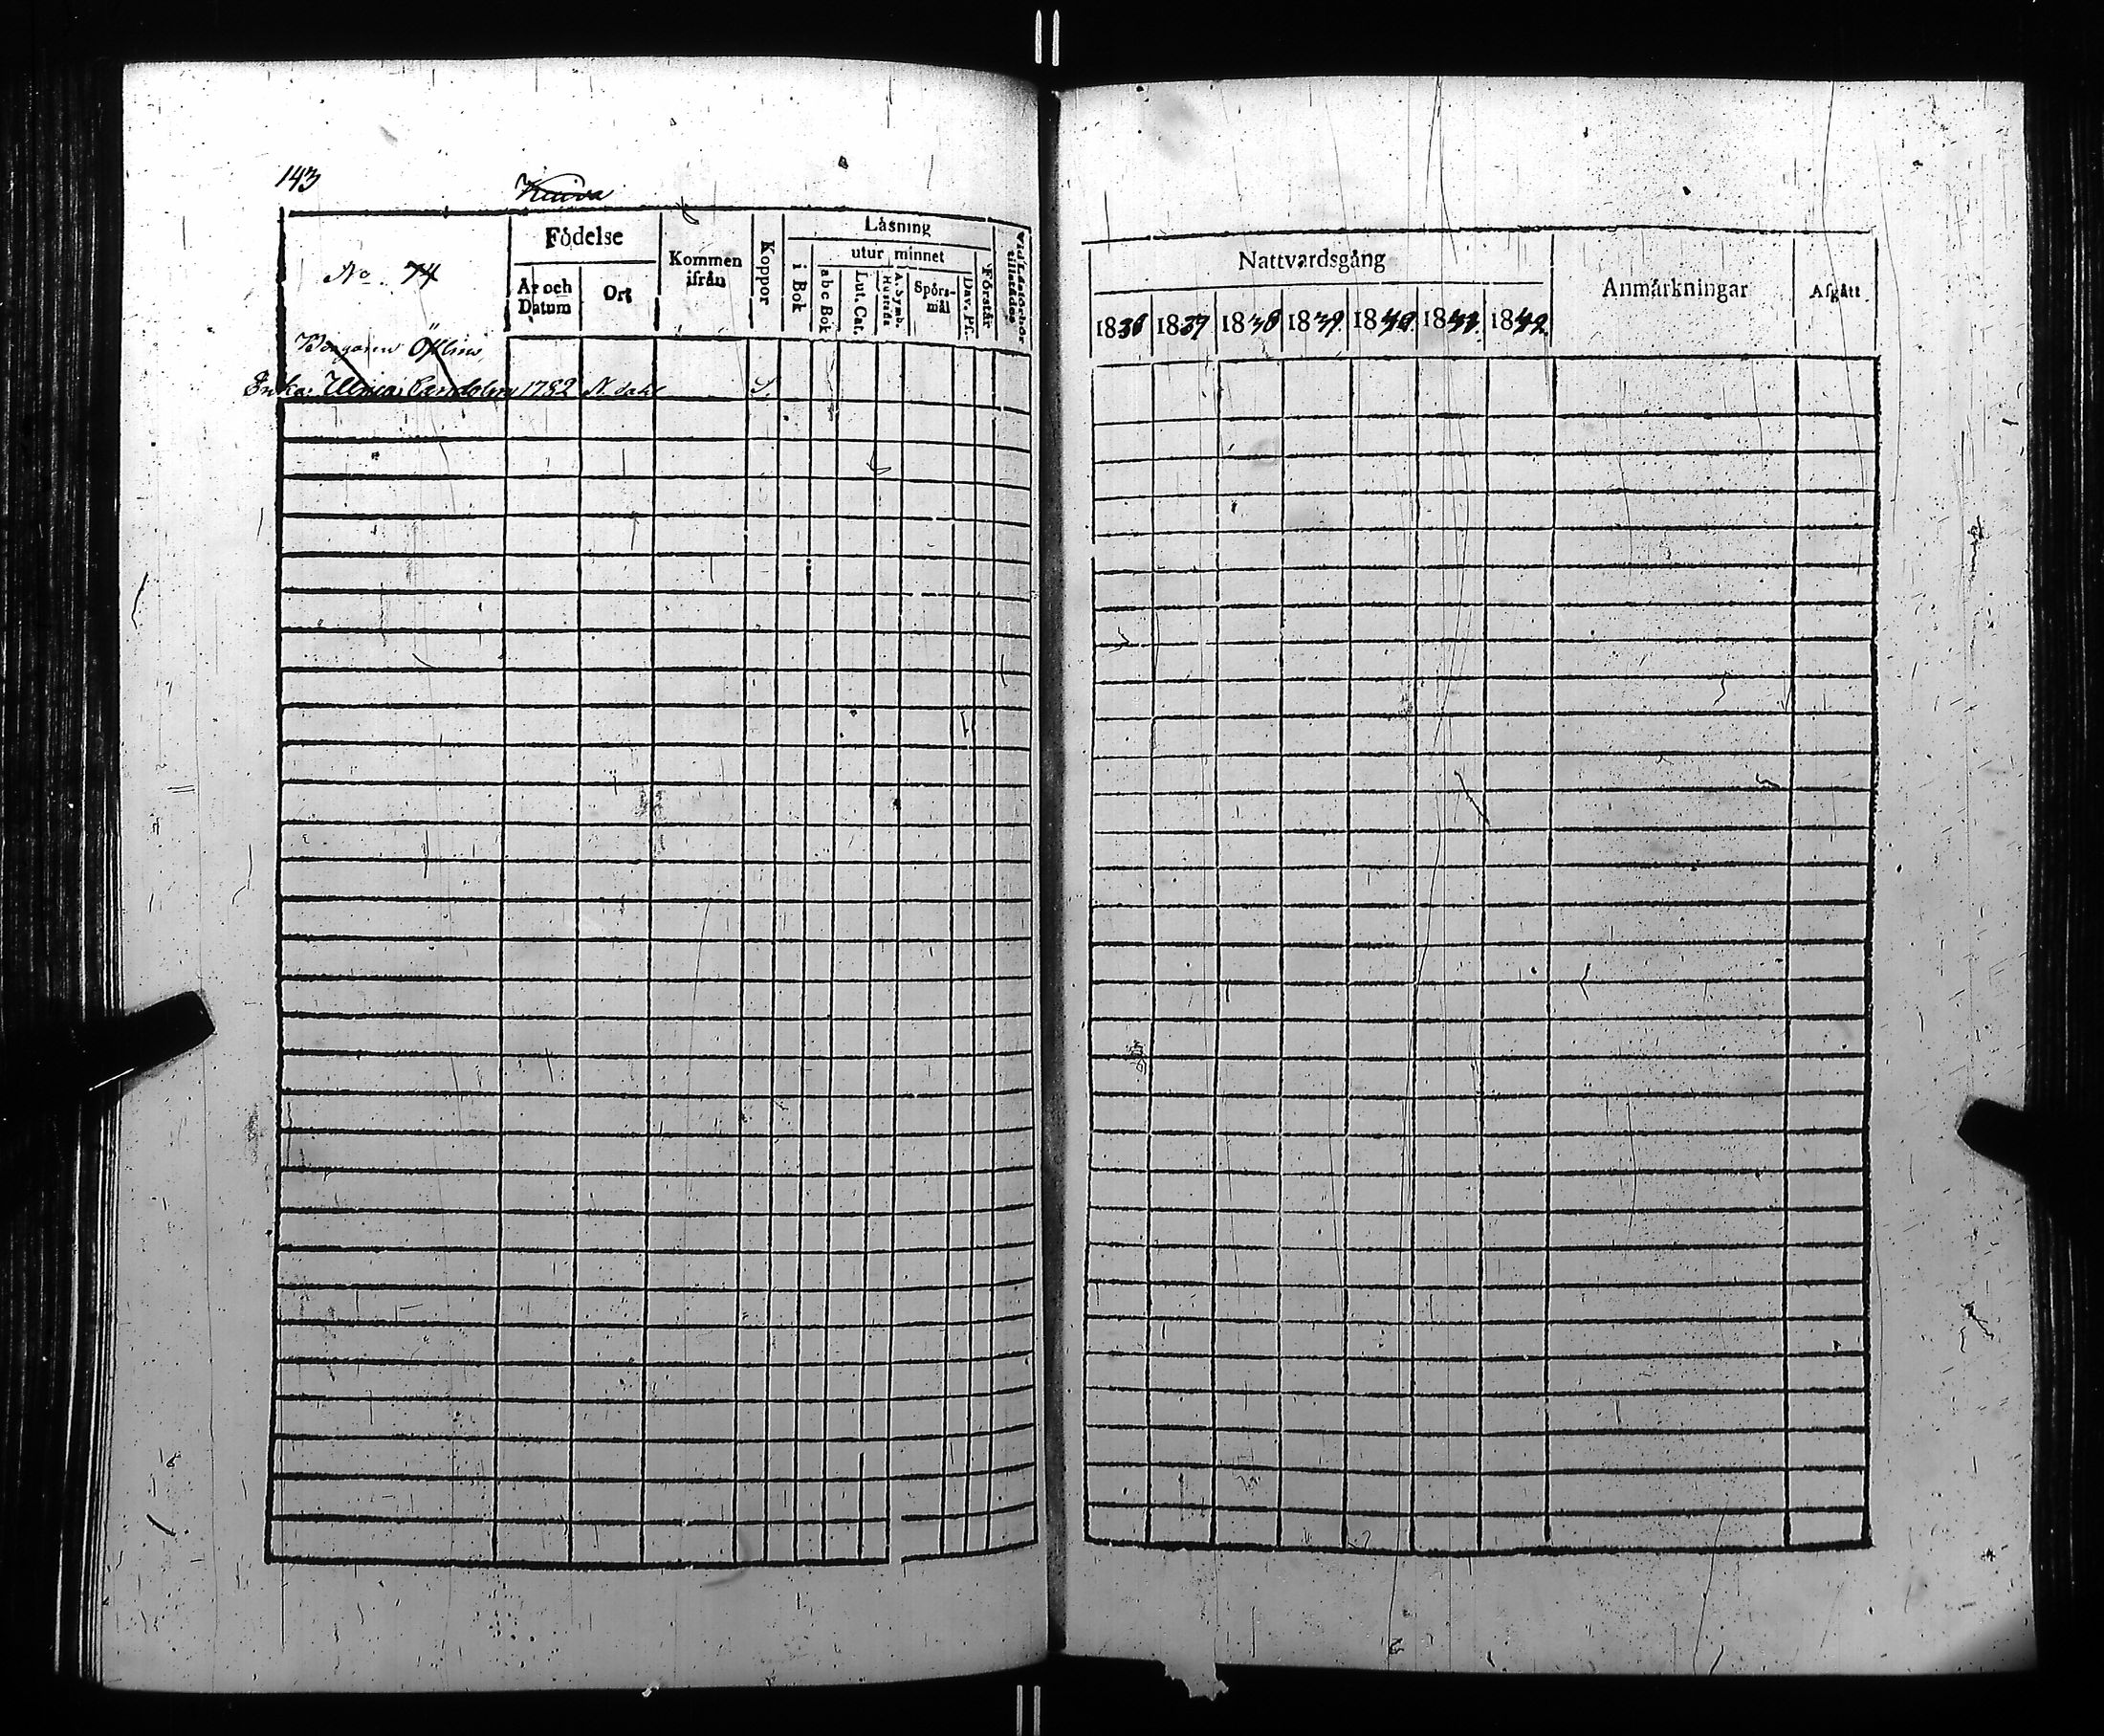 143
No. 74
Födelse
År och Datum
Ort
Kommen ifrån
Koppor
Läsning
i Bok
utur minnet
abc Bok
Lut. Cat.
A. Symb. Hustafla
Spörs-mål
Dav. Ps.
Förstår
Borgaren
Enka Ulrica 1782 N. dahl
Nattvardsgång
1836 1837 1838 1839 1840 1841 1842
Anmärkningar
Afgått